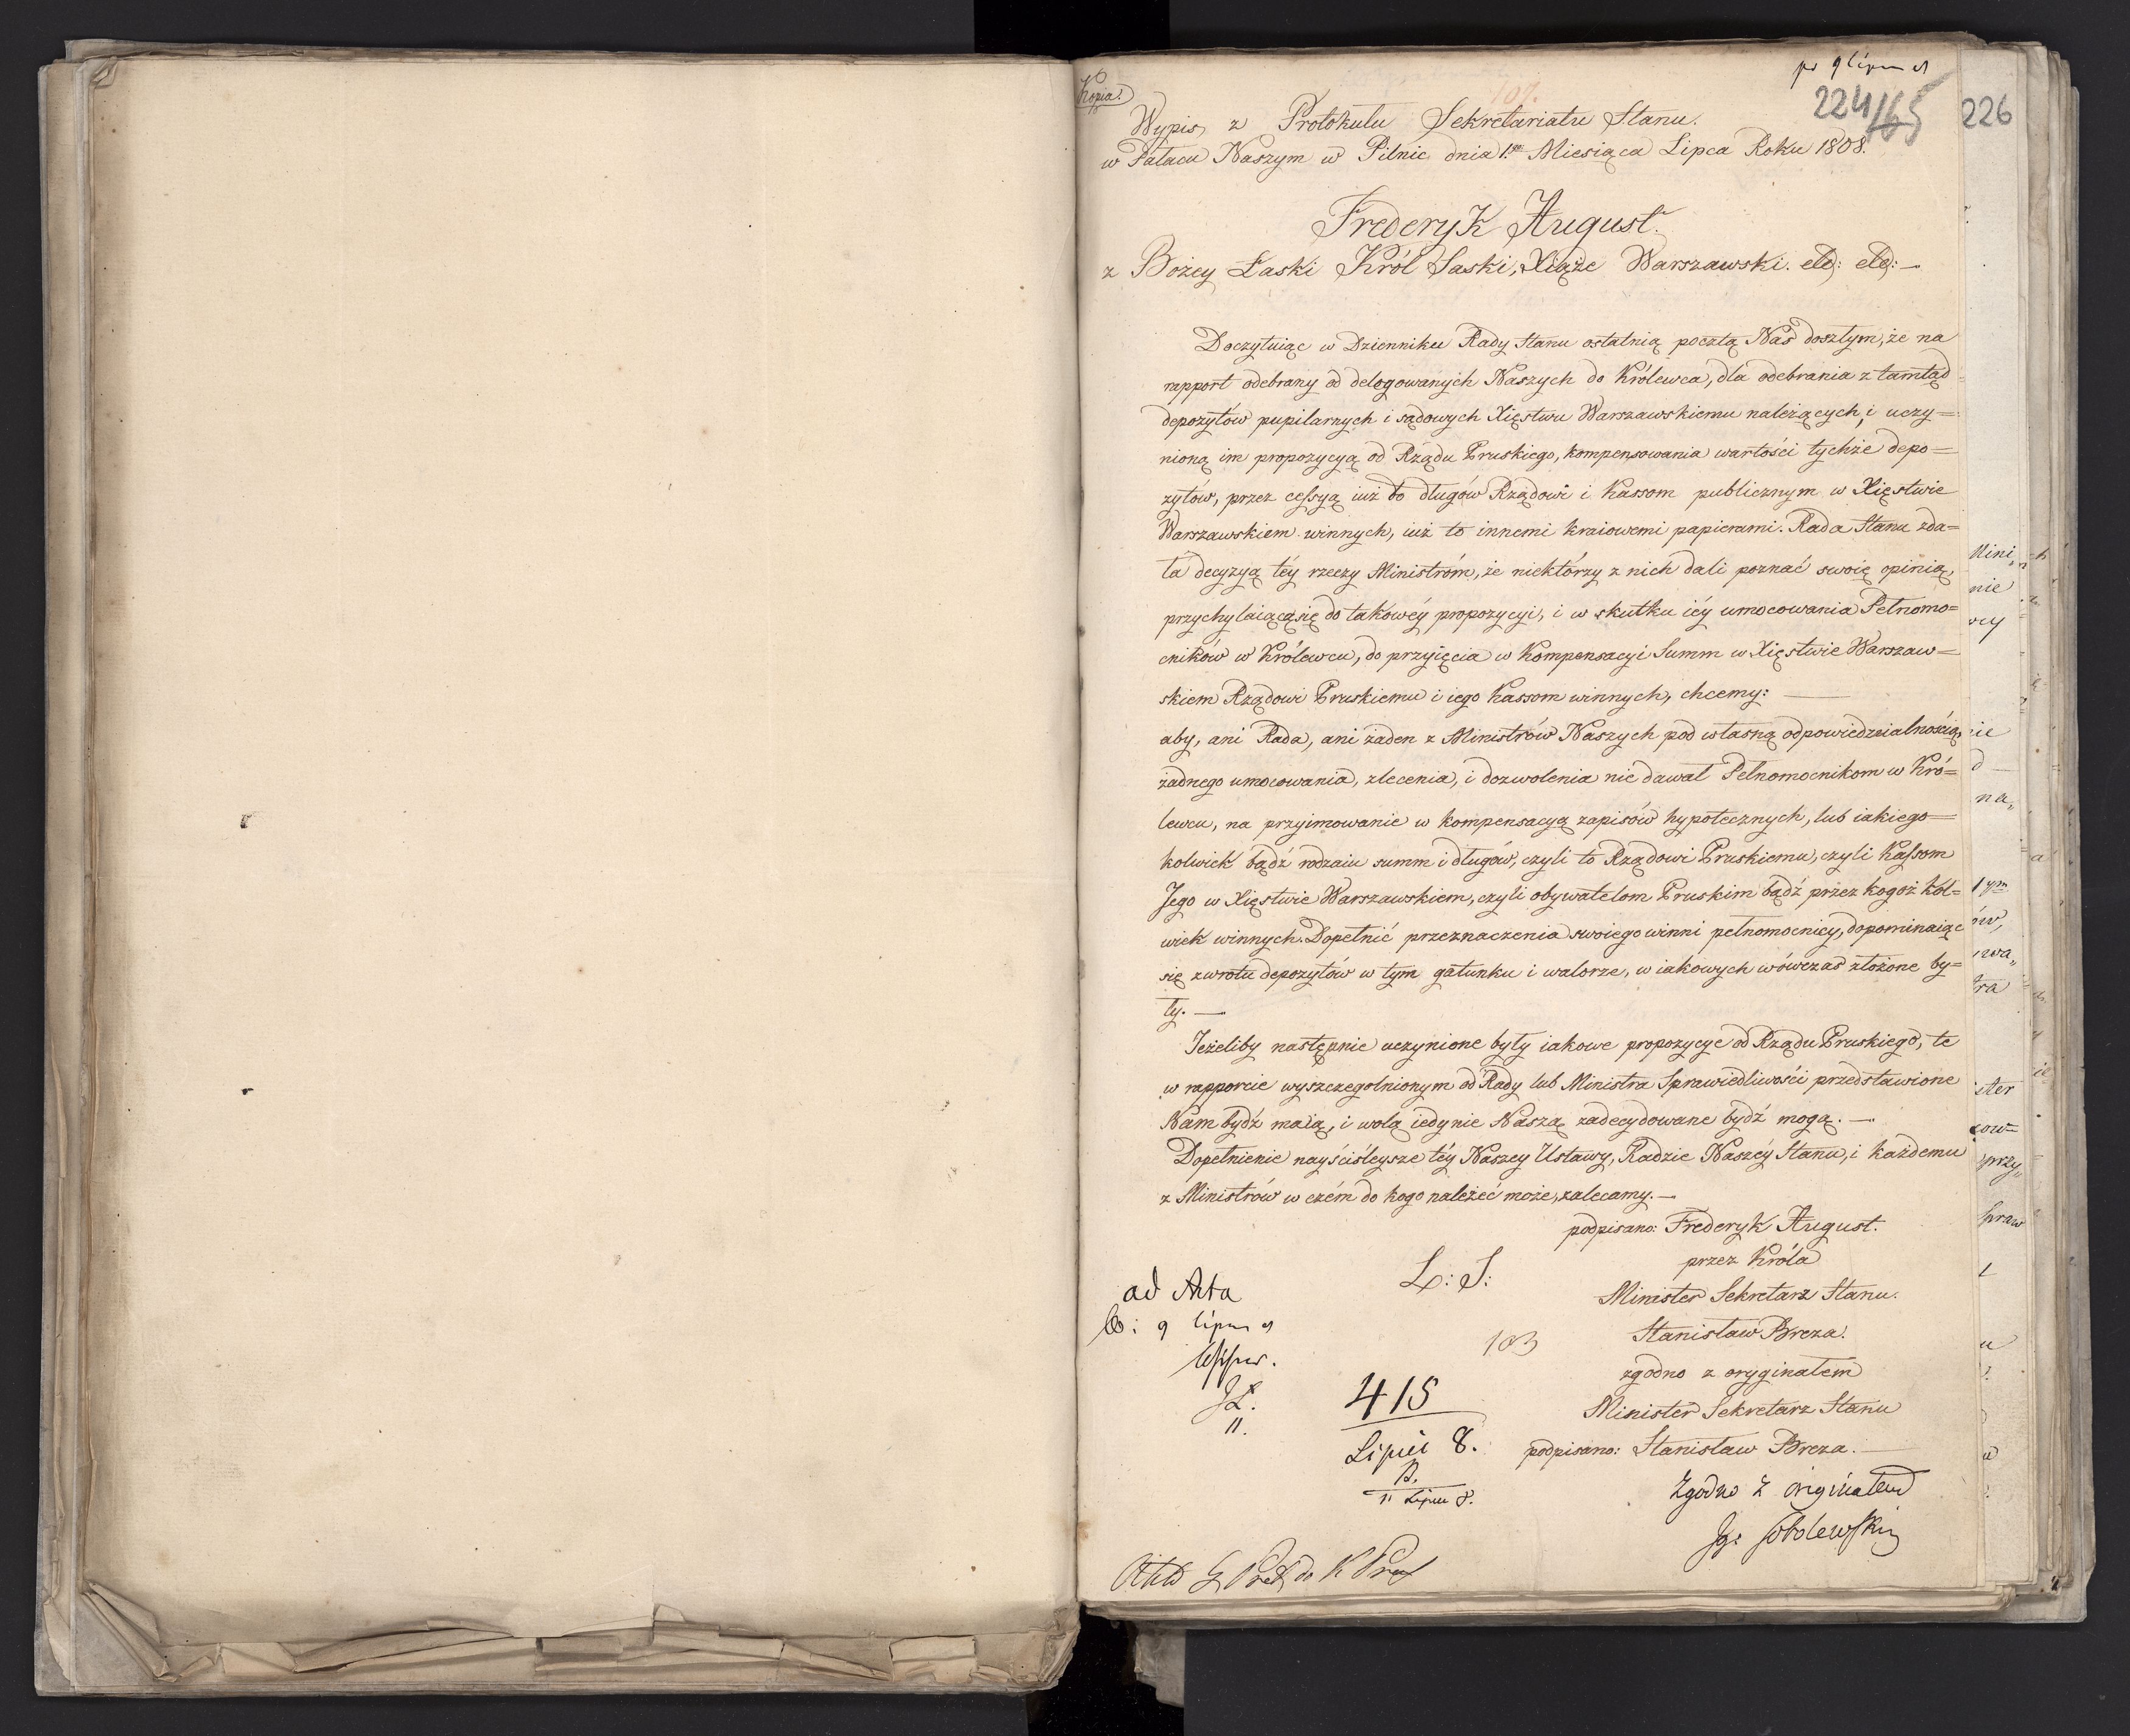 Kopia.
107.
224
165
226
Wypis z Protokułu Sekretariatu Stanu.
w Pałacu Naszym w Pilnic dnia 1.go Miesiąca Lipca Roku 1808.
Frederyk August.
z Bożey Łaski Król Saski, Xiąże Warszawski. etc: etc: —
Doczytuiąc w Dzienniku Rady Stanu ostatnią pocztą Nas doszłym, że na
rapport odebrany od delegowanych Naszych do Królewca, dla odebrania z tamtąd
depozytów pupilarnych i sądowych Xięstwu Warszawskiemu należących, i uczy=
nioną im propozycyą od Rządu Pruskiego, kompensowania wartości tychże depo=
zytów, przez cessyą iuż to długów Rządowi i Kassom publicznym w Xięstwie
Warszawskiem winnych, iuż to innemi kraiowemi papierami. Rada Stanu zda=
ła decyzyą téy rzeczy Ministróm, że niektórzy z nich dali poznać swoię opinią,
przychylaiącą się do takowéy propozycyi, i w skutku iéy umocowania Pełnomo=
cników w Królewcu, do przyięcia w Kompensacyi Summ w Xięstwie Warszaw=
skiem Rządowi Pruskiemu i iego Kassom winnych, chcemy: —
aby, ani Rada, ani żaden z Ministrów Naszych pod własną odpowiedzialnością,
żadnego umocowania, zlecenia, i dozwolenia nie dawał Pełnomocnikom w Kró=
lewcu, na przyimowanie w kompensacyą zapisów hypotecznych, lub iakiego=
kolwiek bądź rodzaiu summ i długów, czyli to Rządowi Pruskiemu, czyli Kassom
Jego w Xięstwie Warszawskiem, czyli obywatelom Pruskim bądź przez kogoż kol=
wiek winnych. Dopełnić przeznaczenia swoiego winni pełnomocnicy, dopominaiąc
się zwrotu depozytów w tym gatunku i walorze, w iakowych wówczas złożone by=
ły. —
Jeżeliby następnie uczynione były iakowe propozycye od Rządu Pruskiego, te
w rapporcie wyszczegolnionym od Rady lub Ministra Sprawiedliwości przedstawione
Nam bydź maią, i wolą iedynie Naszą zadecydowane bydź mogą. —
Dopełnienie nayściśleysze téy Naszey Ustawy, Radzie Naszéy Stanu, i każdemu
z Ministrów w czém do kogo należeć może, zalecamy. —
podpisano: Frederyk August.
przez Króla
L: S:
Minister Sekretarz Stanu.
Stanisław Breza.
zgodno z oryginałem
Minister Sekretarz Stanu
podpisano: Stanisław Breza. —
Zgodno z originałem
Ig: Sobolewski
ad Acta
103
415
Lipiec 8.
11 Lipca 8.